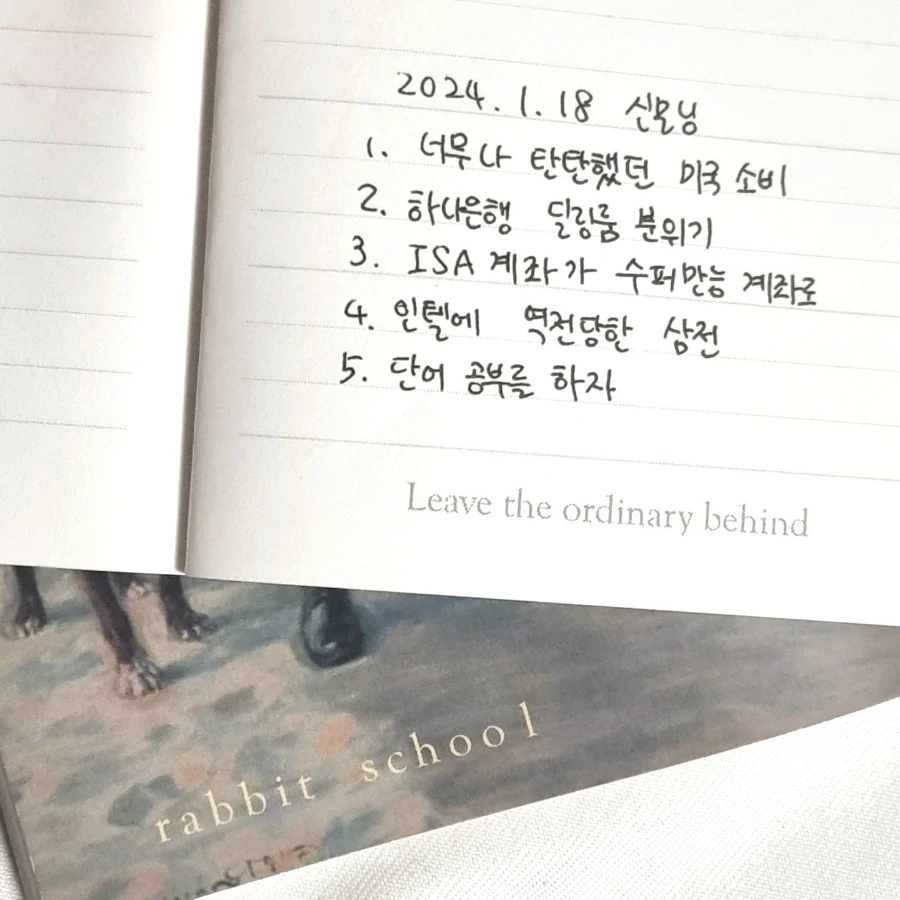 2024. 1. 18 신모닝
1. 너무나 탄탄했던 미국 소비
2. 하나은행 딜링룸 분위기
3. ISA 계좌가 수퍼만능 계좌로
4. 인텔에 역전당한 삼전
5. 단어 공부를 하자
Leave the ordinary behind
rabbit school